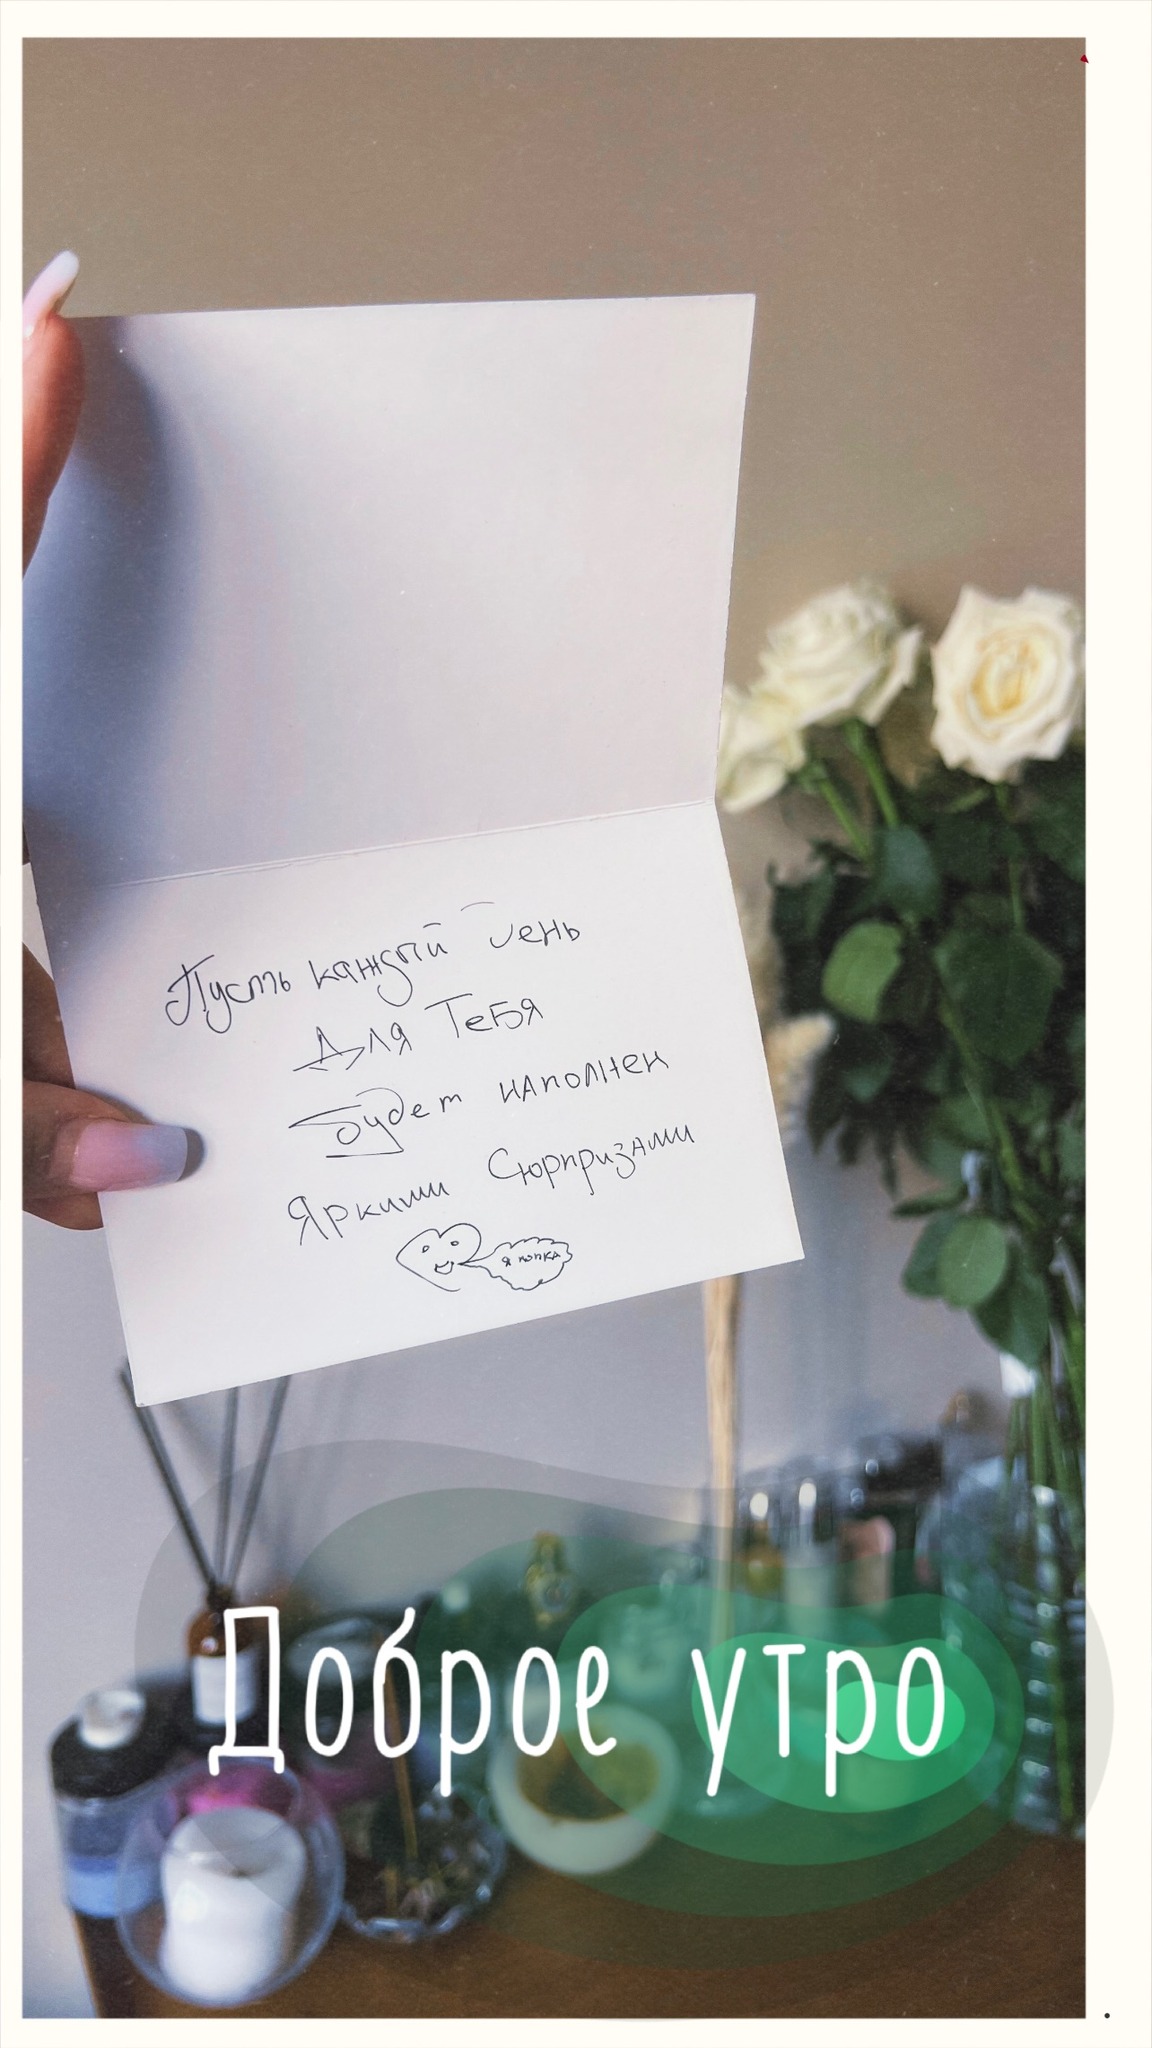 Пусть каждый день
Для Тебя
будет наполнен
Яркими Сюрпризами
я попка
Доброе утро